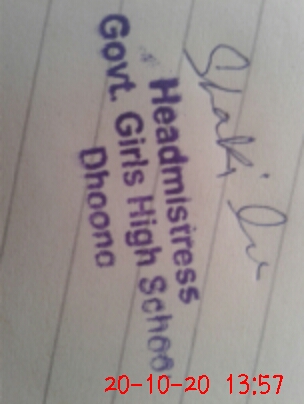 Headmistress
Govt. Girls High School
Dhoona
20-10-20 13:57